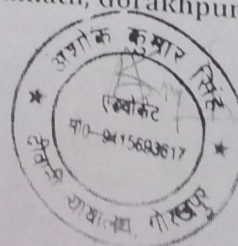 Gorakhpur
अशोक कुमार सिंह
एडवोकेट
मो०-9415693617
दीवानी न्यायालय, गोरखपुर